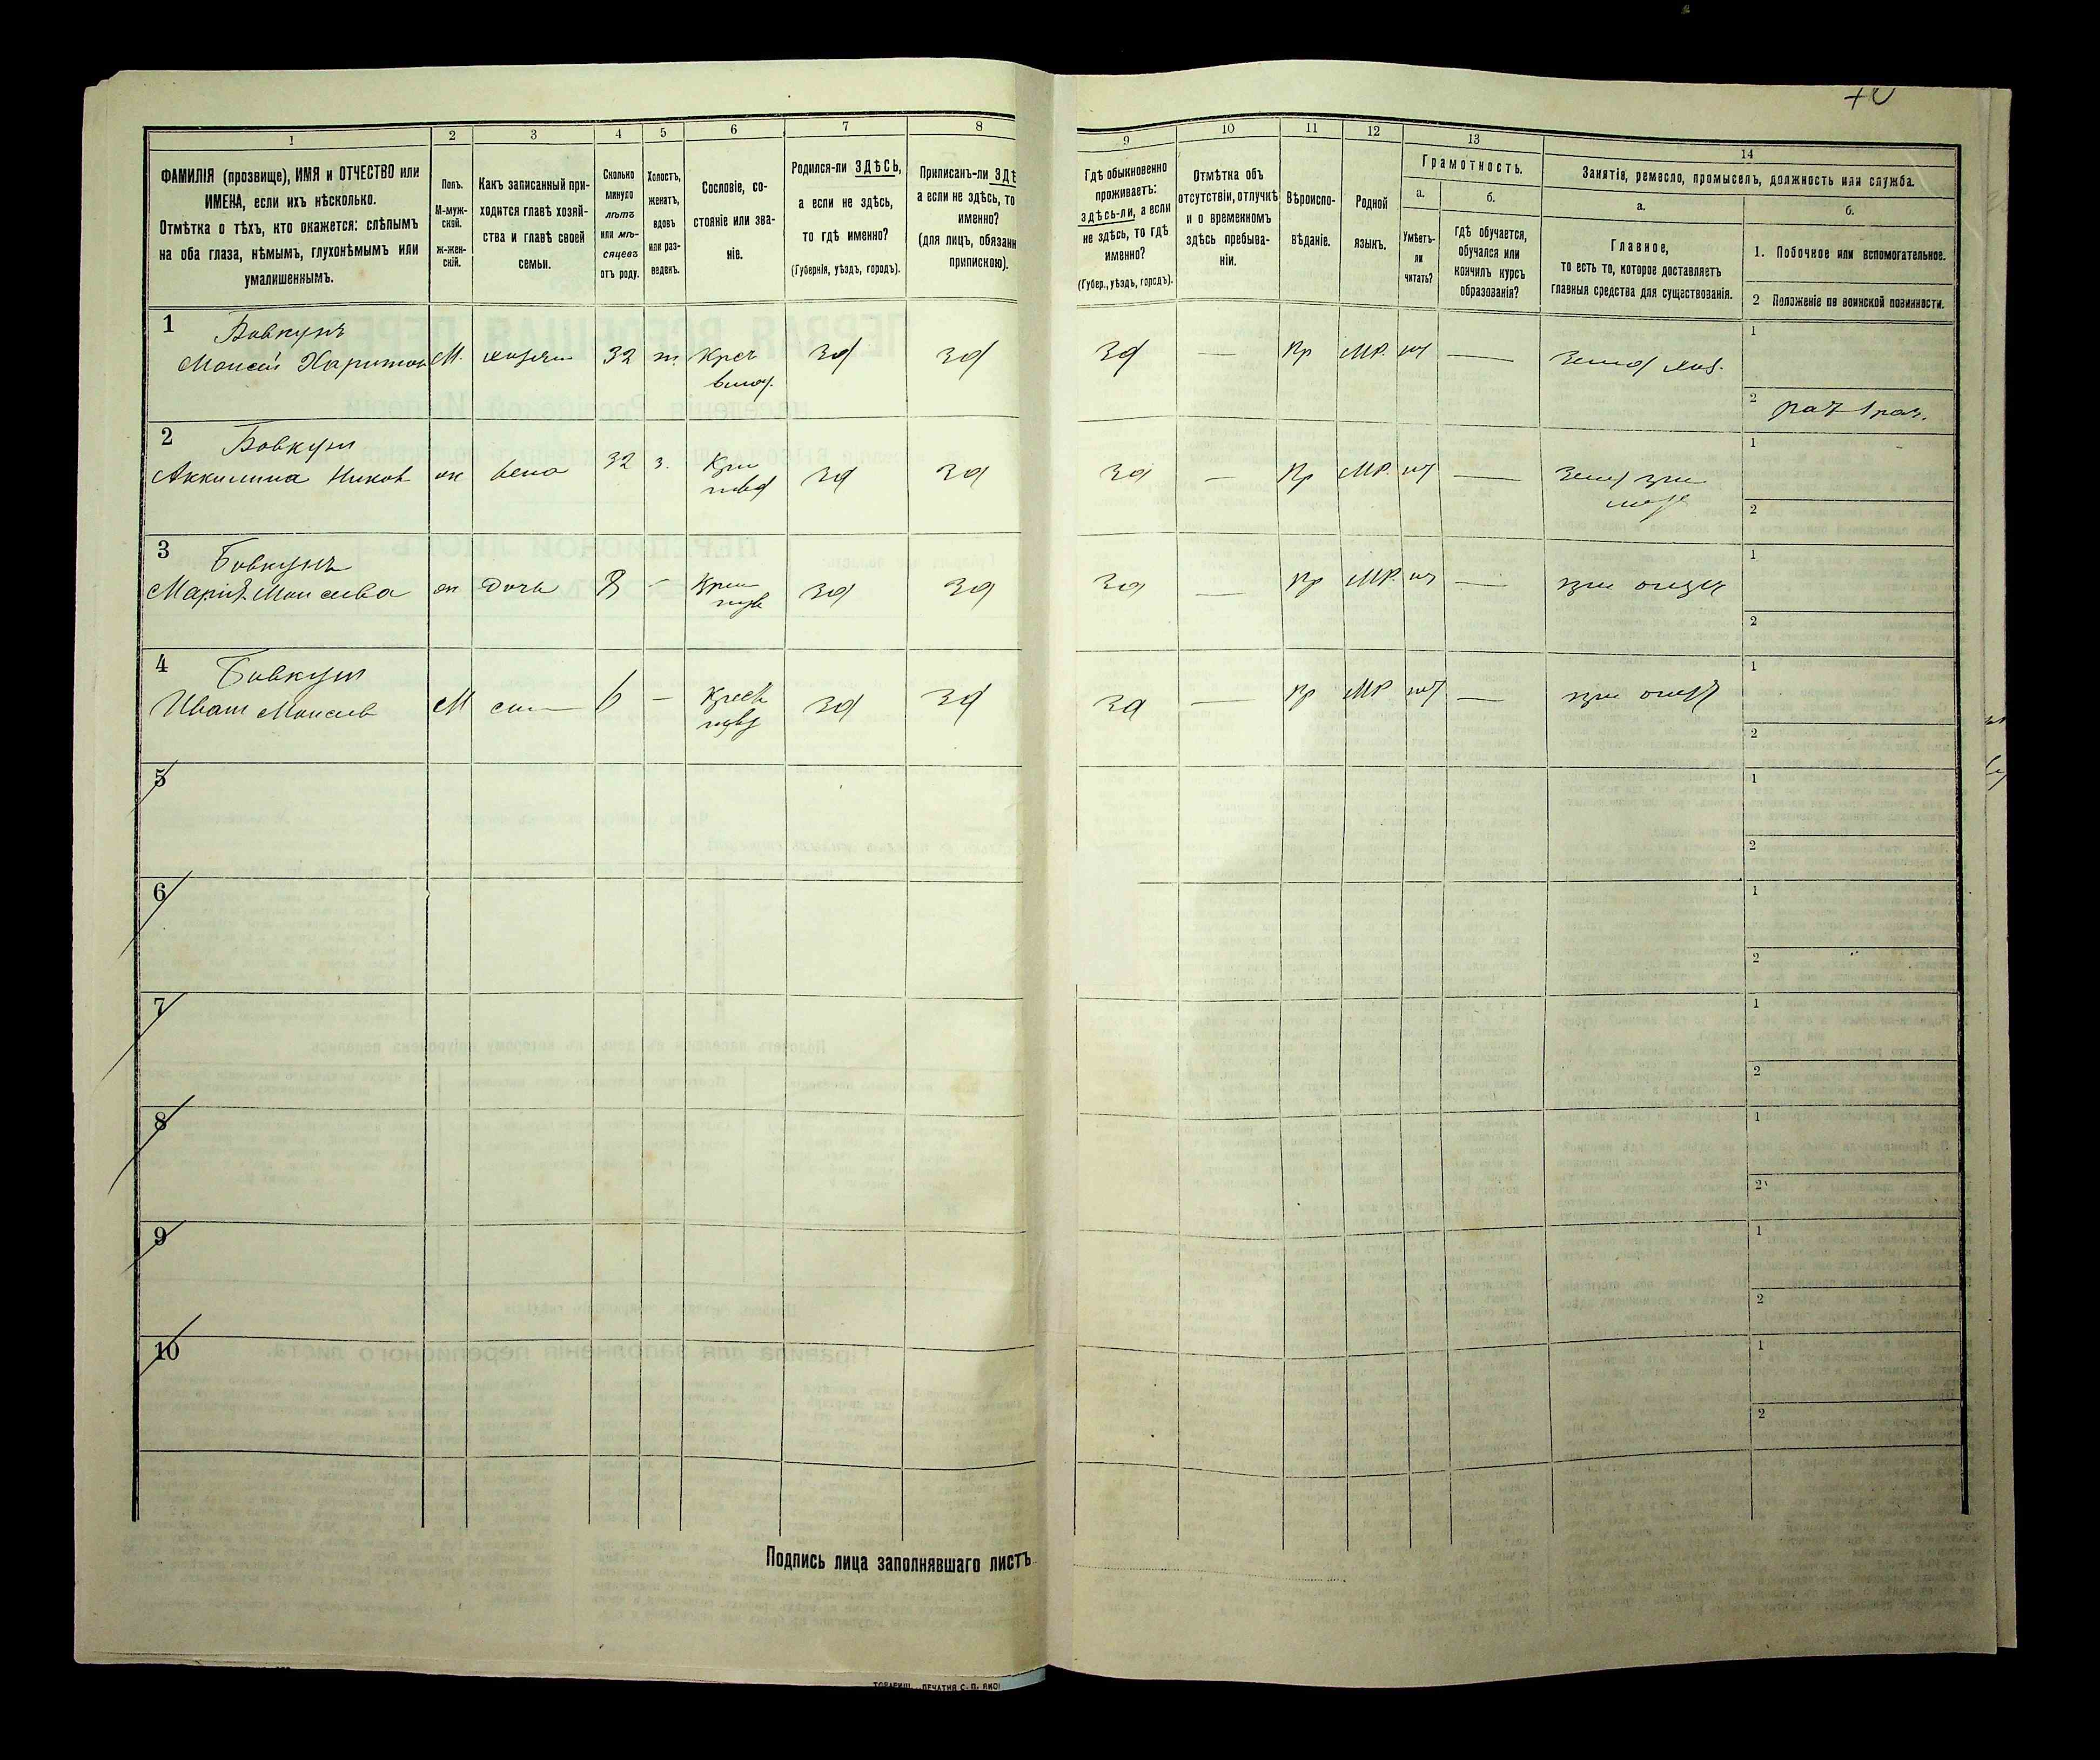 1 2 3 4 5 6 7 8 9 10 11 12 13 14
ФАМИЛІЯ (прозвище), ИМЯ и ОТЧЕСТВО или
ИМЕНА, если ихъ нѣсколько.
Отмѣтка о тѣхъ, кто окажется: слѣпымъ
на оба глаза, нѣмымъ, глухонѣмымъ или
умалишеннымъ.
Полъ.
М-муж-
ской.
ж-жен-
скій.
Какъ записанный при-
ходится главѣ хозяй-
ства и главѣ своей
семьи.
Сколько
минуло
лѣтъ
или мѣ-
сяцевъ
отъ роду.
Холостъ,
женатъ,
вдовъ
или раз-
веденъ.
Сословіе, со-
стояніе или зва-
ніе.
Родился-ли ЗДѢСЬ,
а если не здѣсь,
то гдѣ именно?
(Губернія, уѣздъ, городъ).
Приписанъ-ли ЗДѢ
а если не здѣсь, то
именно?
(для лицъ, обязанн
припискою).
Гдѣ обыкновенно
проживаетъ:
здѣсь-ли, а если
не здѣсь, то гдѣ
именно?
(Губер., уѣздъ, городъ).
Отмѣтка объ
отсутствіи, отлучкѣ
и о временномъ
здѣсь пребыва-
ніи.
Вѣроиспо-
вѣданіе.
Родной
языкъ.
Грамотность.
а.
Умѣетъ-
ли
читать?
б.
гдѣ обучается,
обучался или
кончилъ курсъ
образованія?
Занятія, ремесло, промыселъ, должность или служба.
а.
Главное,
то есть то, которое доставляетъ
главныя средства для существованія.
б.
1. Побочное или вспомогательное.
2 Положеніе по воинской повинности.
1 Бовкунъ
Моисей Харитон М. хозяин 32 ж. Крест зд зд зд — Пр МР. нт —
1
2
2 Бовкун
Аккилина Ников ж жена 32 з. зд зд зд — Пр МР. нт —
1
2
3 Бовкунъ
Марія Моисеева ж дочь 8 — зд зд зд — Пр МР. нт — при отцѣ
1
2
4 Бовкун
Иван Моисеев М сын 6 — зд зд зд — Пр МР. нт — при отцѣ
1
2
5
1
2
6
1
2
7
1
2
8
1
2
9
1
2
10
1
2
Подпись лица заполнявшаго листъ
ПЕЧАТНЯ С. П. ЯКО